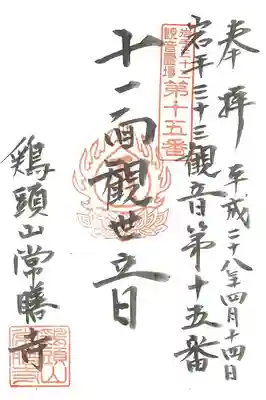 奉拝 平成二十八年四月十四日
岩手三十三観音第十五番
岩手三十三
観音霊場
第十五番
十一面觀世音
鶏頭山常勝寺